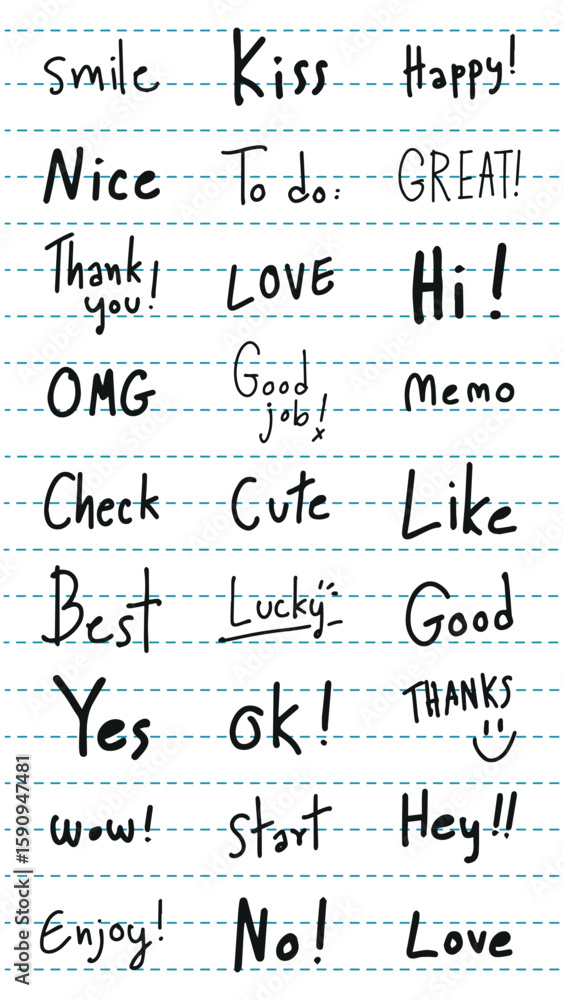 Smile Kiss Happy!
Nice To do: GREAT!
Thank you! LOVE Hi!
OMG Good job! Memo
Check Cute Like
Best Lucky Good
Yes ok! THANKS
wow! start Hey!!
Enjoy! No! Love
Adobe Stock | #1590947481